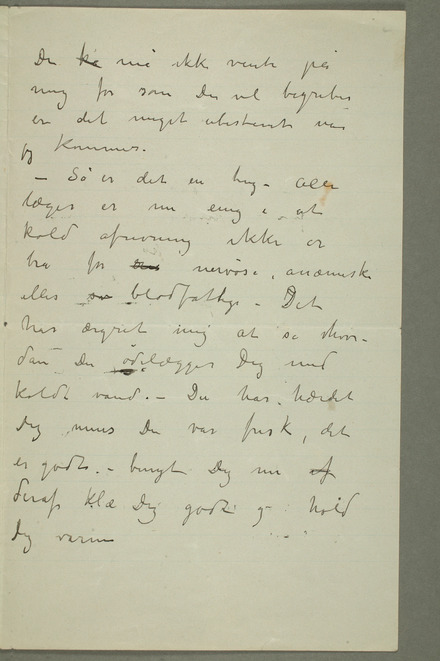 Du må ikke vente på
mig for som Du vel begriber
er det meget ubestemt når
jeg kommer.
– Så er det en ting – Alle
læger er nu enig i, at
kold afrivning ikke er
bra for nervøse, anæmiske
eller blodfattige – Det
har ærgret mig at se hvor-
dan Du ödelægger Dig med
koldt vand. – Du har hærdet
Dig mens Du var frisk, det
er godt. – benyt Dig nu
deraf klæ Dig godt og hold
Dig varm